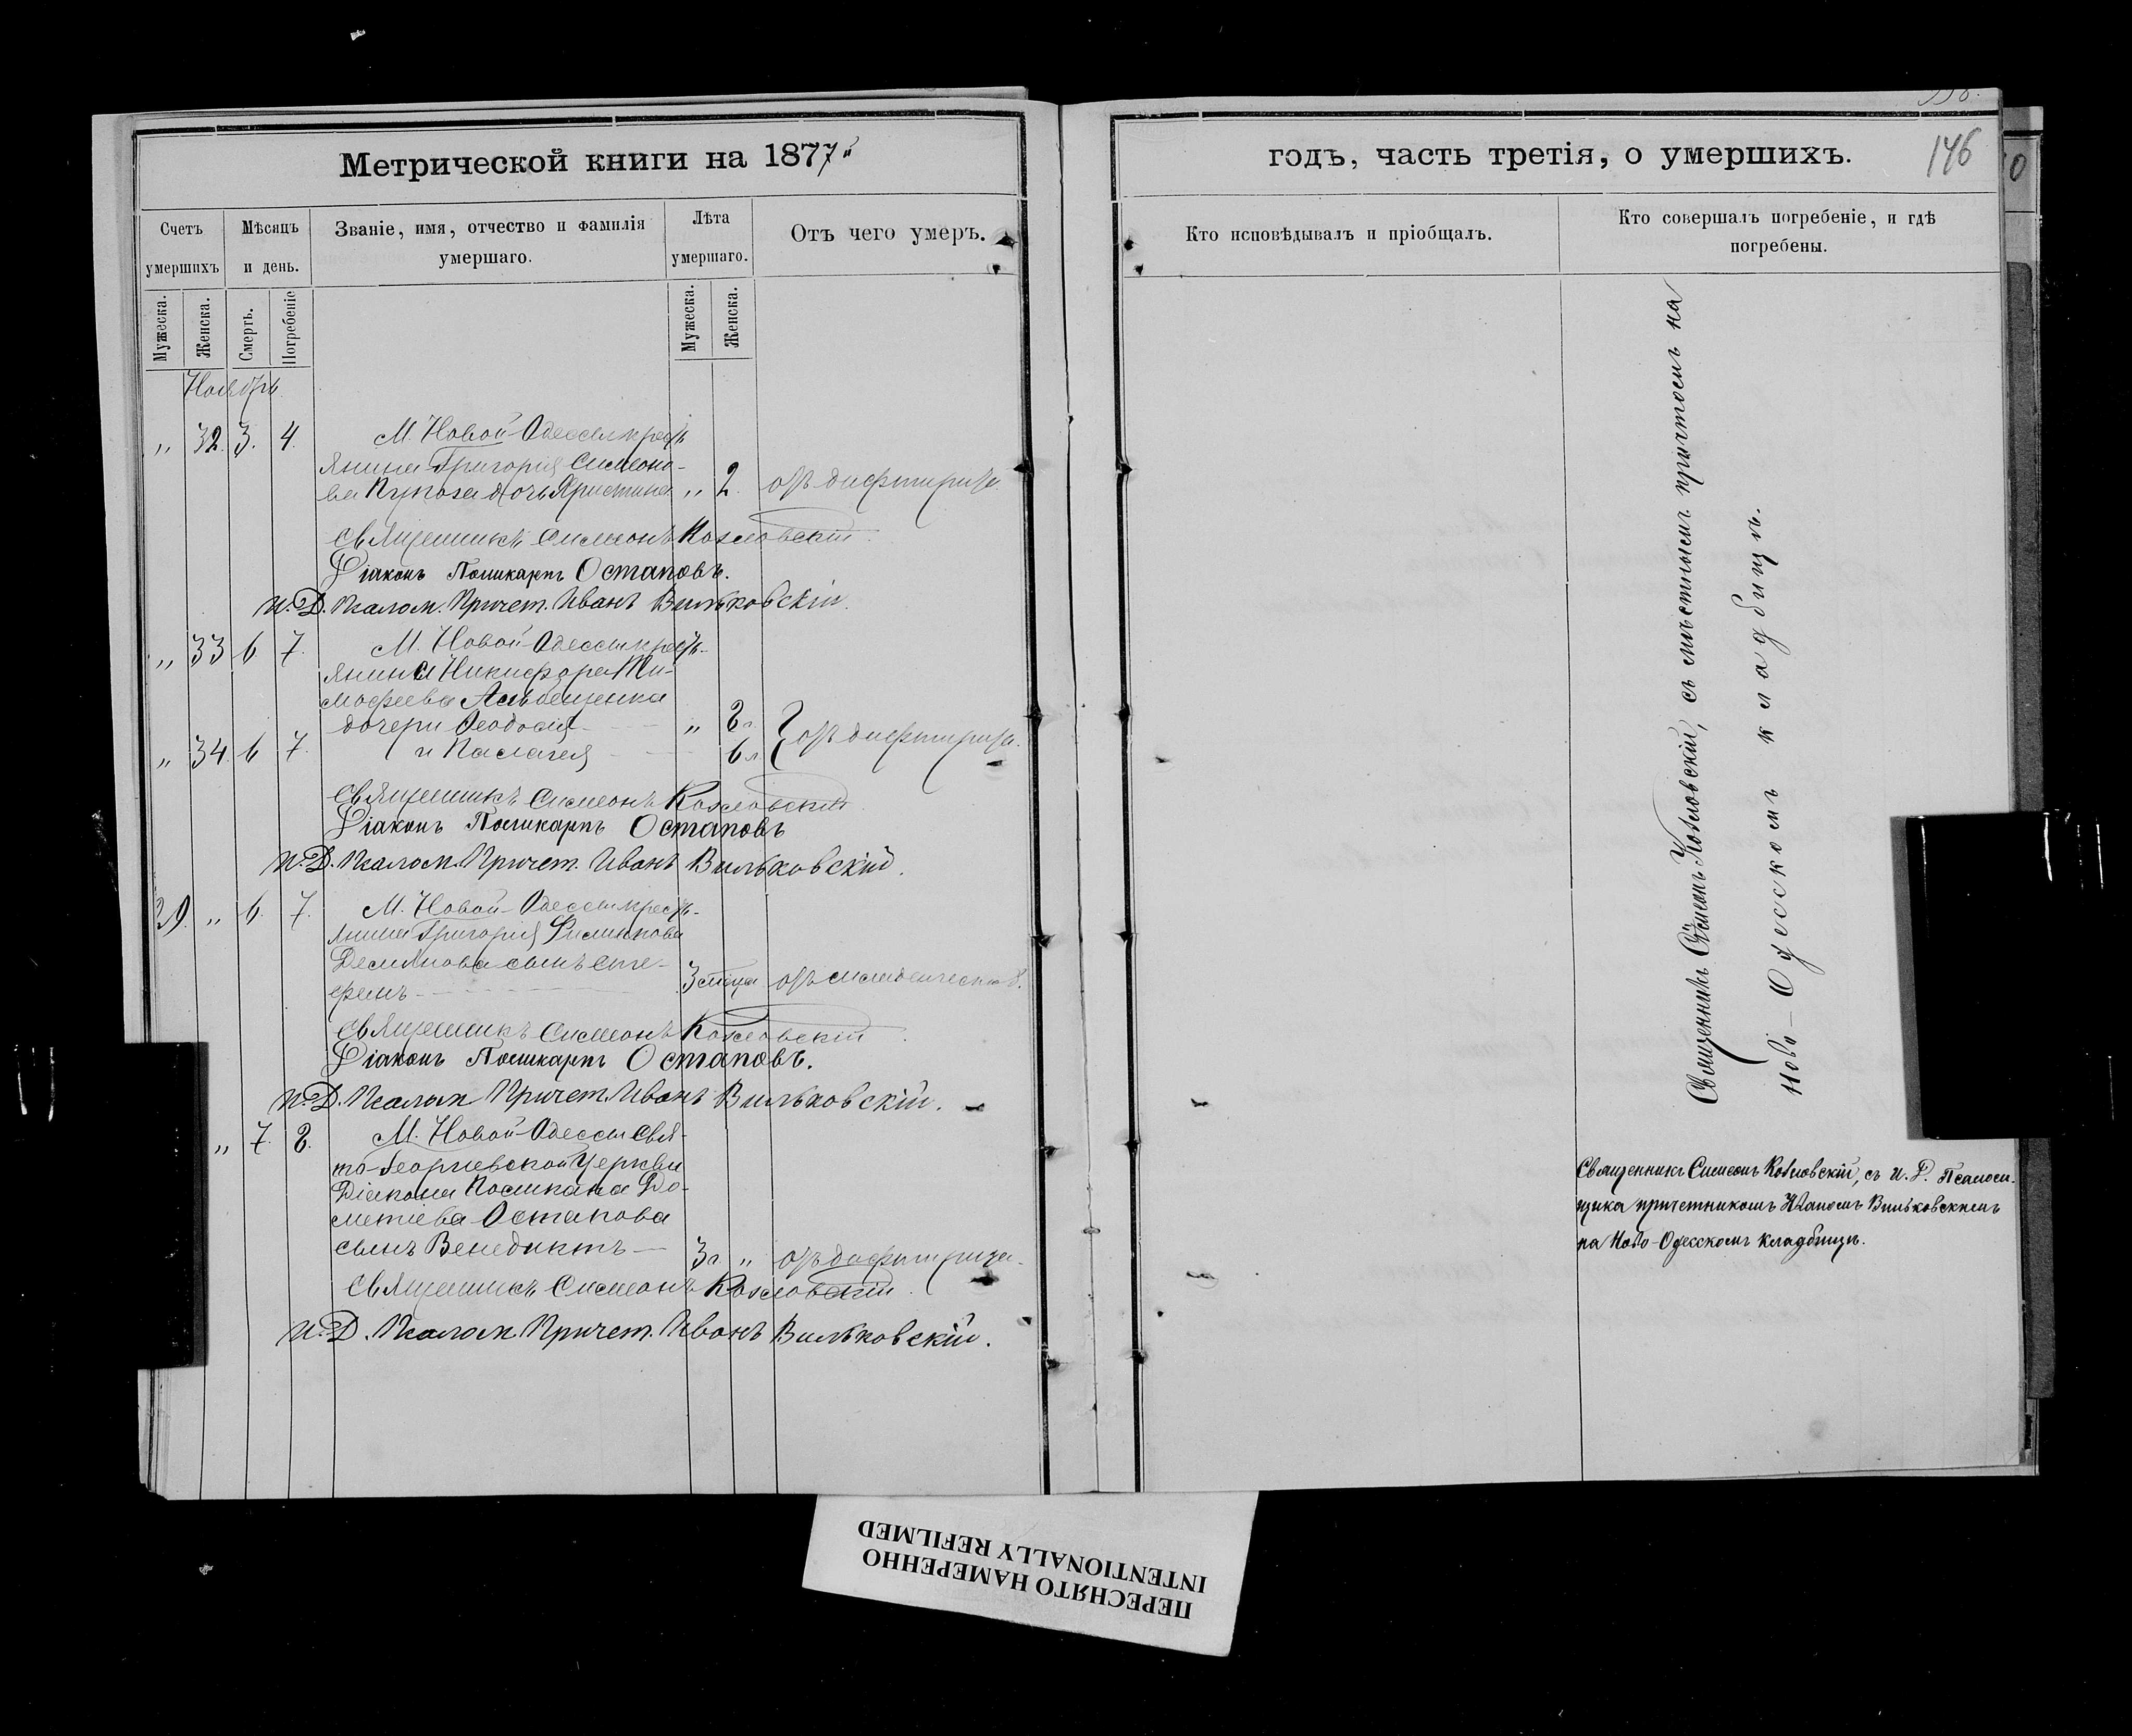 Метрической книги на 1877й
Счетъ умершихъ
Мѣсяцъ и день.
Званіе, имя, отчество и фамилія умершаго.
Лѣта умершаго.
Отъ чего умеръ.
Мужеска.
Женска.
Смерть.
Погребеніе
Мужеска.
Женска.
Ноябрь
„ 32. 3. 4. М. Новой-Одессы крест-
янина Григорія Симеоно-
ва дочь Христина „ 2. отъ дифтирита
Священникъ Симеонъ Козловскій
Діаконъ Поликарпъ Остаповъ.
И. Д. Псалом. Причет. Иванъ Вильковскій.
„ 33 6 7. М. Новой-Одессы крест-
янина Никифора Ти-
мофеева
дочери Феодосія „ 2л
„ 34. 6 7. и Пелагея 6л отъ дифтирита.
Священникъ Симеонъ Козловскій
Діаконъ Поликарпъ Остаповъ
И. Д. Псалом. Причет. Иванъ Вильковскій.
29. „ 6. 7. М. Новой-Одессы крест-
янина Григорія Филиппова
Демянова сынъ Сте-
фанъ 3 отъ
Священникъ Симеонъ Козловскій
Діаконъ Поликарпъ Остаповъ.
И. Д. Псалом Причет. Иванъ Вильковскій.
„ 7. 8. М. Новой-Одессы Свя-
то-Георгіевской Церкви
Діакона Поликапа До-
метіева Остапова
сынъ Венедиктъ 3л „ отъ дифтирита.
Священникъ Симеонъ Козловскій.
И. Д. Псалом. Причет. Иванъ Вильковскій.
годъ, часть третія, о умершихъ.
146
Кто исповѣдывалъ и пріобщалъ.
Кто совершалъ погребеніе, и гдѣ погребены.
Священникъ Симеонъ Козловскій, съ мѣстнымъ причтомъ на
Ново-Одесскомъ кладбищѣ.
Священникъ Симеонъ Козловскій, съ И. Д. Псалом-
щика причетникомъ Иваномъ Вильковскимъ
на Ново-Одесскомъ кладбищѣ.
ПЕРЕСНЯТО НАМЕРЕННО
INTENTIONALLY REFILMED